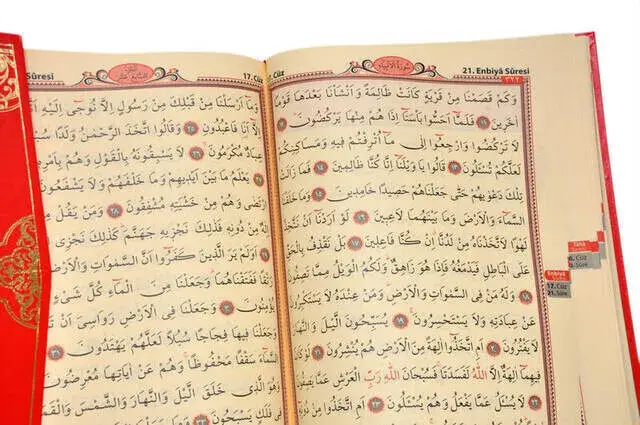 21. Enbiyâ Sûresi
سورة الانبياء
17. Cüz
وَكَمْ قَصَمْنَا مِنْ قَرْيَةٍ كَانَتْ ظَالِمَةً وَاَنْشَأْنَا بَعْدَهَا قَوْمًا
اٰخَرِينَ ١١ فَلَمَّٓا اَحَسُّوا بَأْسَنَٓا اِذَا هُمْ مِنْهَا يَرْكُضُونَ ١٢
لَا تَرْكُضُوا وَارْجِعُٓوا اِلٰى مَٓا اُتْرِفْتُمْ فِيهِ وَمَسَاكِنِكُمْ
لَعَلَّكُمْ تُسْـَٔلُونَ ١٣ قَالُوا يَا وَيْلَنَٓا اِنَّا كُنَّا ظَالِمِينَ ١٤ فَمَا زَالَتْ
تِلْكَ دَعْوٰيهُمْ حَتّٰى جَعَلْنَاهُمْ حَصِيدًا خَامِدِينَ ١٥
السَّمَٓاءَ وَالْاَرْضَ وَمَا بَيْنَهُمَا لَاعِبِينَ ١٦ لَوْ اَرَدْنَٓا اَنْ نَتَّخِذَ
لَهْوًا لَاتَّخَذْنَاهُ مِنْ لَدُنَّٓا اِنْ كُنَّا فَاعِلِينَ ١٧ بَلْ نَقْذِفُ بِالْحَقِّ
عَلَى الْبَاطِلِ فَيَدْمَغُهُ فَاِذَا هُوَ زَاهِقٌ وَلَكُمُ الْوَيْلُ مِمَّا تَصِفُونَ
١٨ وَلَهُ مَنْ فِي السَّمٰوَاتِ وَالْاَرْضِ وَمَنْ عِنْدَهُ لَا يَسْتَكْبِرُونَ
عَنْ عِبَادَتِهِ وَلَا يَسْتَحْسِرُونَ ١٩ يُسَبِّحُونَ الَّيْلَ وَالنَّهَارَ
لَا يَفْتُرُونَ ٢٠ اَمِ اتَّخَذُٓوا اٰلِهَةً مِنَ الْاَرْضِ هُمْ يُنْشِرُونَ ٢١
فِيهِمَٓا اٰلِهَةٌ اِلَّا اللّٰهُ لَفَسَدَتَا فَسُبْحَانَ اللّٰهِ رَبِّ الْعَرْشِ عَمَّا يَصِفُونَ
٢٢ لَا يُسْـَٔلُ عَمَّا يَفْعَلُ وَهُمْ يُسْـَٔلُونَ ٢٣ اَمِ اتَّخَذُوا مِنْ دُونِهِ
17. Cüz
Sûresi
وَمَٓا اَرْسَلْنَا مِنْ قَبْلِكَ مِنْ رَسُولٍ اِلَّا نُوحِٓي اِلَيْهِ اَنَّهُ
اِلَّٓا اَنَا فَاعْبُدُونِ ٢٥ وَقَالُوا اتَّخَذَ الرَّحْمٰنُ وَلَدًا سُبْحَانَهُ
عِبَادٌ مُكْرَمُونَ ٢٦ لَا يَسْبِقُونَهُ بِالْقَوْلِ وَهُمْ بِاَمْرِهِ
٢٧ يَعْلَمُ مَا بَيْنَ اَيْدِيهِمْ وَمَا خَلْفَهُمْ وَلَا يَشْفَعُونَ
ارْتَضٰى وَهُمْ مِنْ خَشْيَتِهِ مُشْفِقُونَ ٢٨ وَمَنْ يَقُلْ مِنْهُمْ
مِنْ دُونِهِ فَذٰلِكَ نَجْزِيهِ جَهَنَّمَ كَذٰلِكَ نَجْزِي
اَوَلَمْ يَرَ الَّذِينَ كَفَرُٓوا اَنَّ السَّمٰوَاتِ وَالْاَرْضَ
رَتْقًا فَفَتَقْنَاهُمَا وَجَعَلْنَا مِنَ الْمَٓاءِ كُلَّ شَيْءٍ
يُؤْمِنُونَ ٣٠ وَجَعَلْنَا فِي الْاَرْضِ رَوَاسِيَ اَنْ
وَجَعَلْنَا فِيهَا فِجَاجًا سُبُلًا لَعَلَّهُمْ يَهْتَدُونَ ٣١
السَّمَٓاءَ سَقْفًا مَحْفُوظًا وَهُمْ عَنْ اٰيَاتِهَا مُعْرِضُونَ
وَهُوَ الَّذِي خَلَقَ الَّيْلَ وَالنَّهَارَ وَالشَّمْسَ وَالْقَمَرَ
فِي فَلَكٍ يَسْبَحُونَ ٣٣
Tâhâ
Cüz
Sûre
Enbiyâ
17. Cüz
21. Sûre